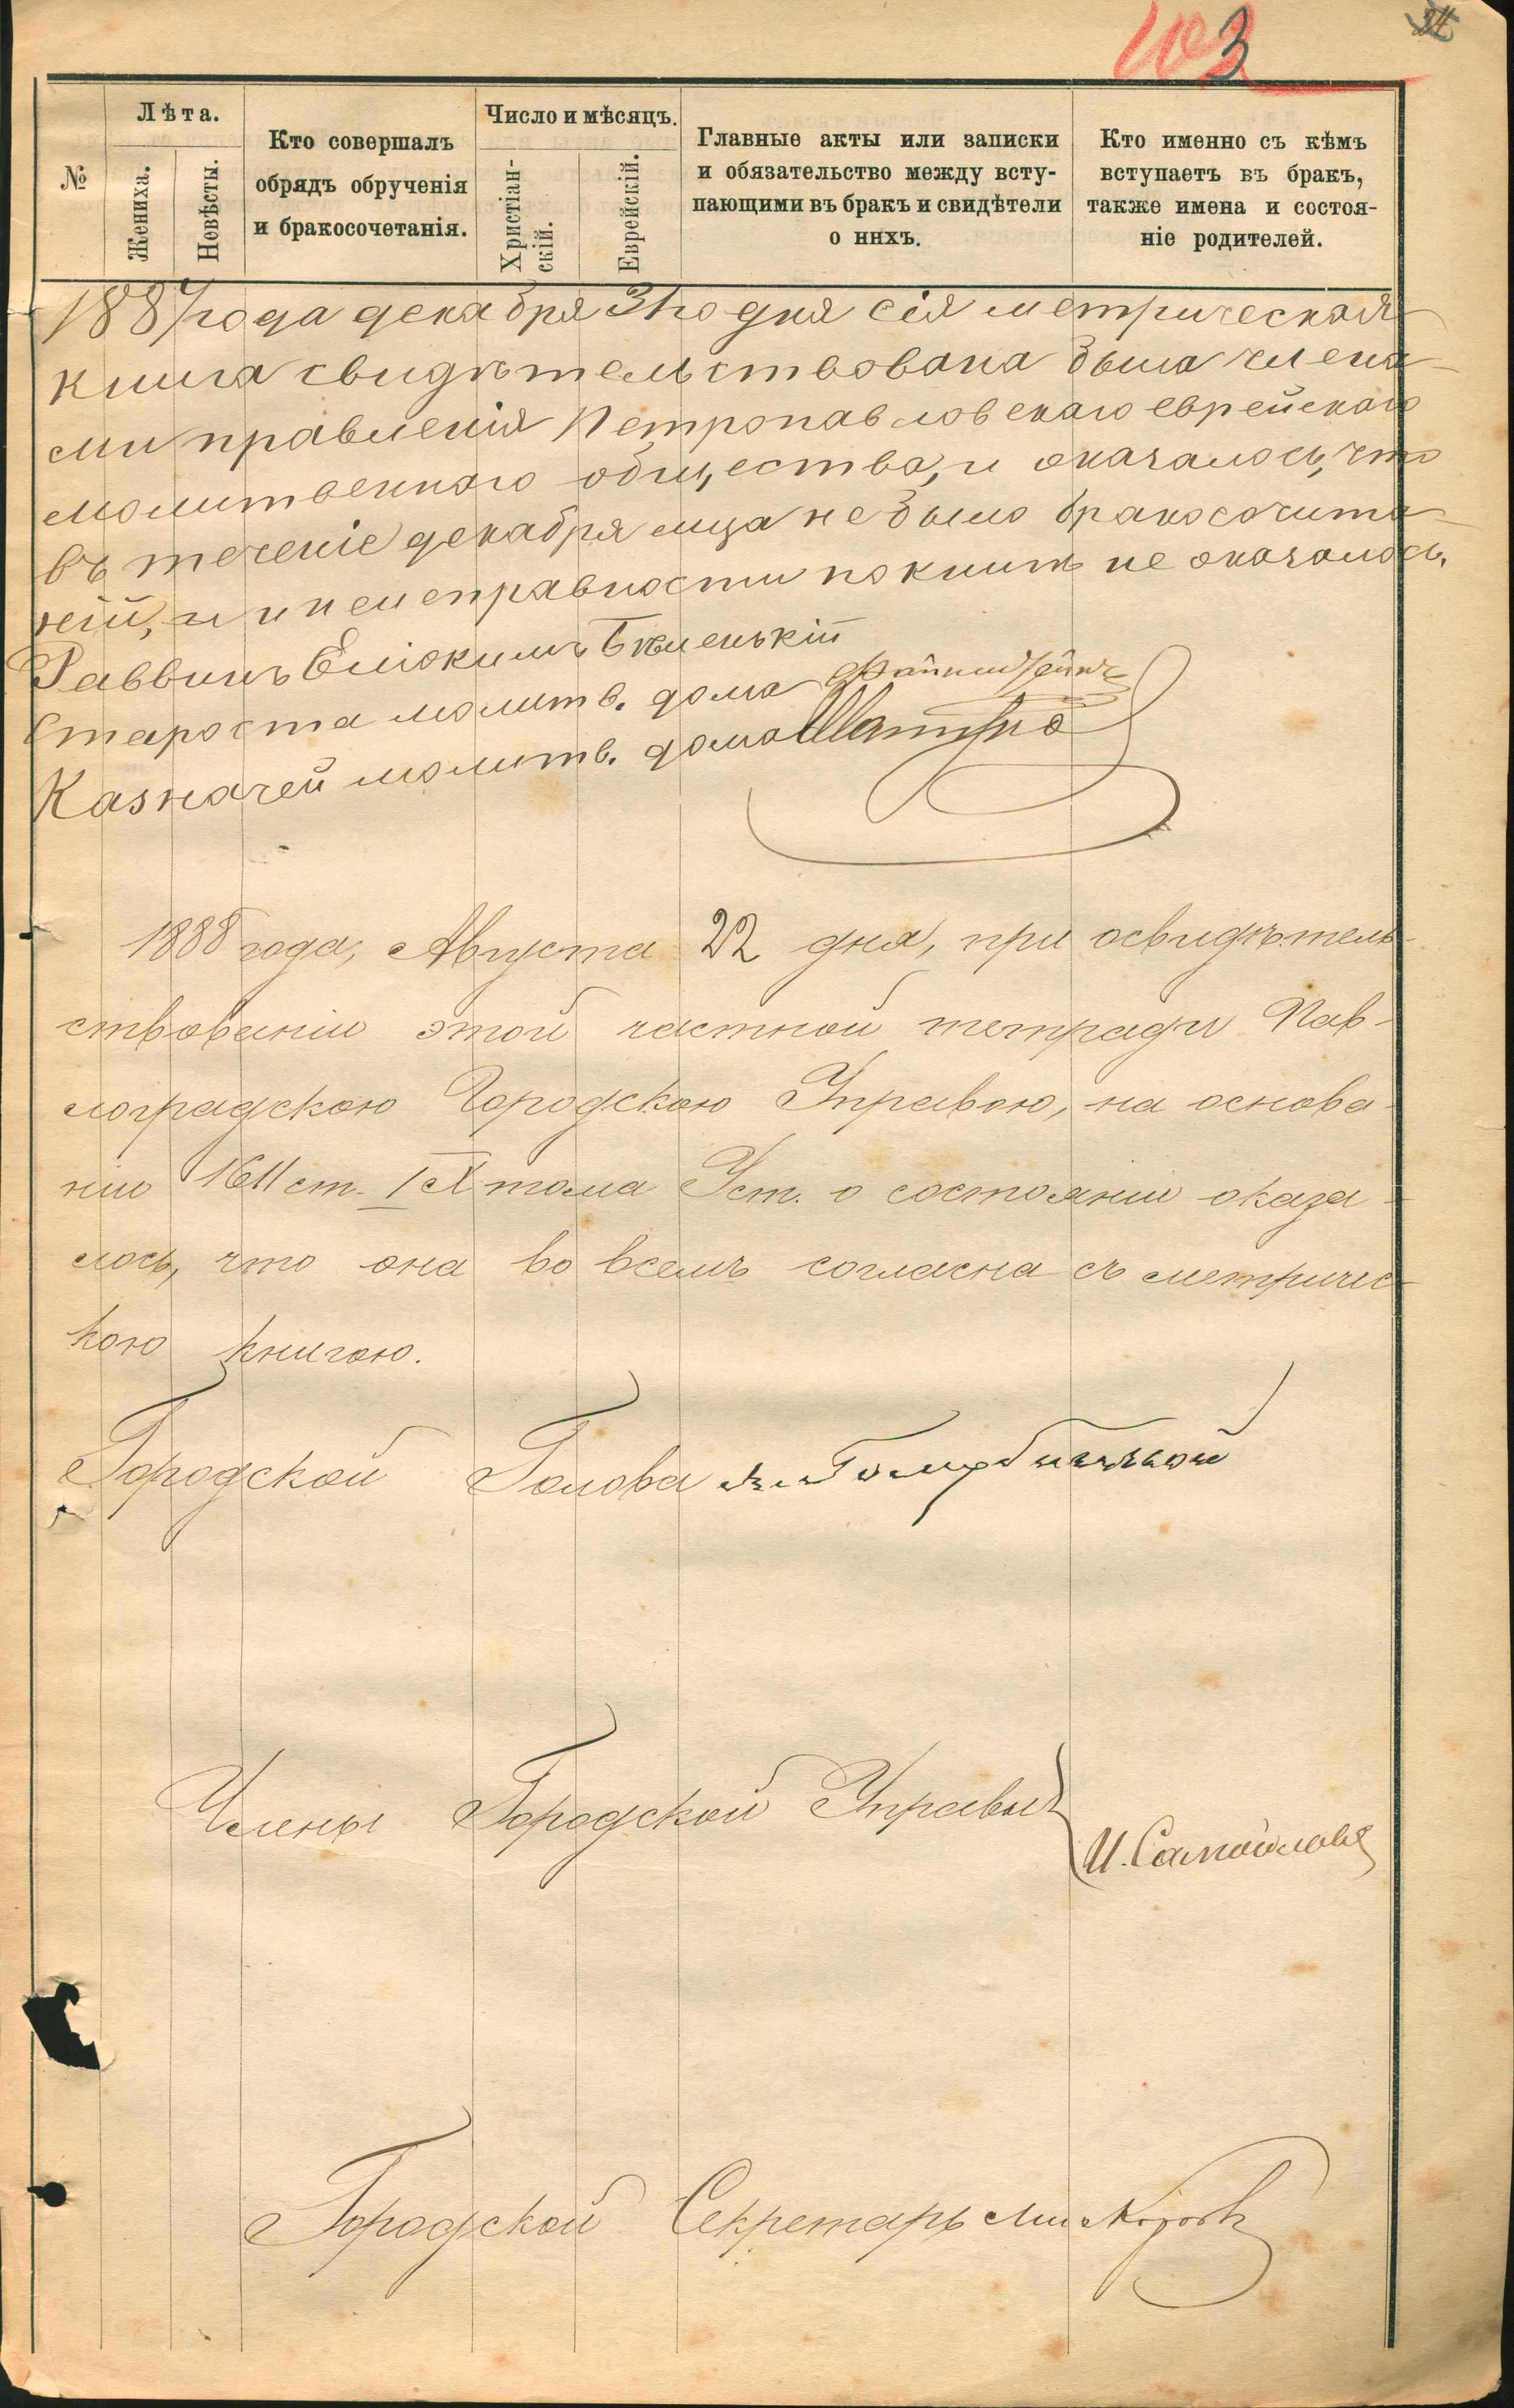 103
34
№
Лѣта.
Жениха.
Невѣсты.
Кто совершалъ
обрядъ обрученія
и бракосочетанія.
Число и мѣсяцъ.
Христіан-
скій.
Еврейскій.
Главные акты или записки
и обязательство между всту-
пающими въ бракъ и свидѣтели
о нихъ.
Кто именно съ кѣмъ
вступаетъ въ бракъ,
также имена и состоя-
ніе родителей.
1887 года декабря 31го дня сія метрическая
книга свидѣтельствована была члена-
ми правленія Петропавловскаго еврейскаго
молитвеннаго общества, и оказалось, что
въ теченіе декабря мца не было бракосочита-
ній, и неисправности по книгѣ не оказалось.
Раввинъ Еліокимъ
Староста молитв. дома
Казначей молитв. дома Шапиро
1888 года, Августа 22 дня, при освидѣтель-
ствованіи этой частной тетради Пав-
лоградскою Городскою Управою, на основа-
ніи 1611 ст. IX тома Уст. о состояніи оказа-
лось, что она во всемъ согласна съ метричес-
кою книгою.
Городской Голова
Члены Городской Управы
И. Самойловъ
Городской Секретарь